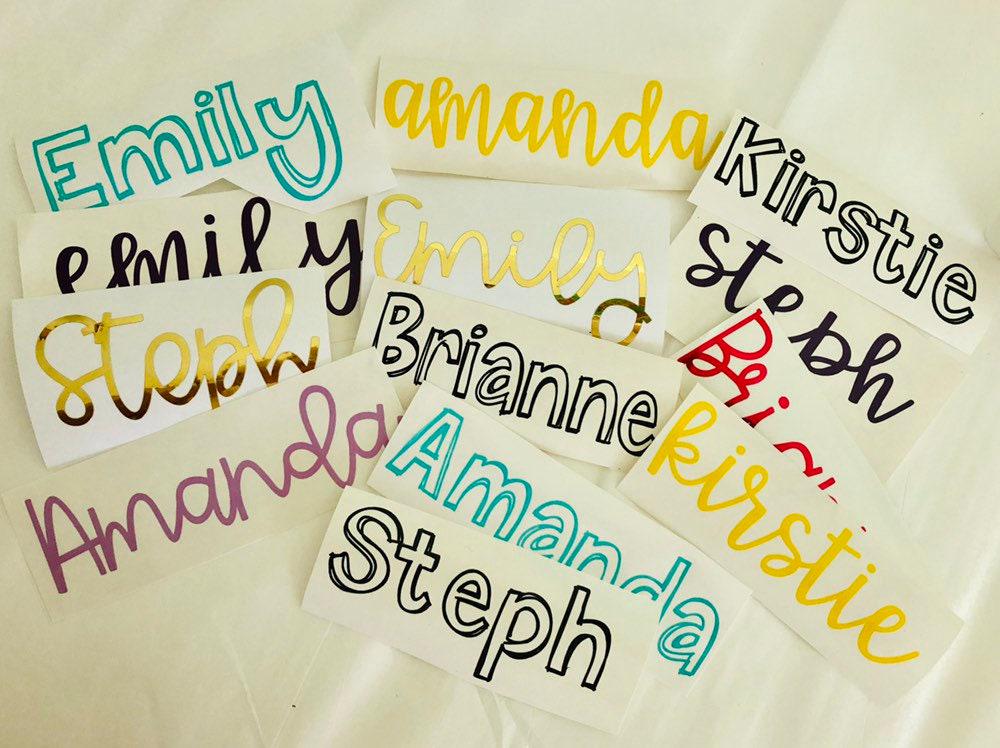 Emily
amanda
Kirstie
emily
Emily
steph
Steph
Brianne
Bri
kirstie
Amanda
Amanda
Steph